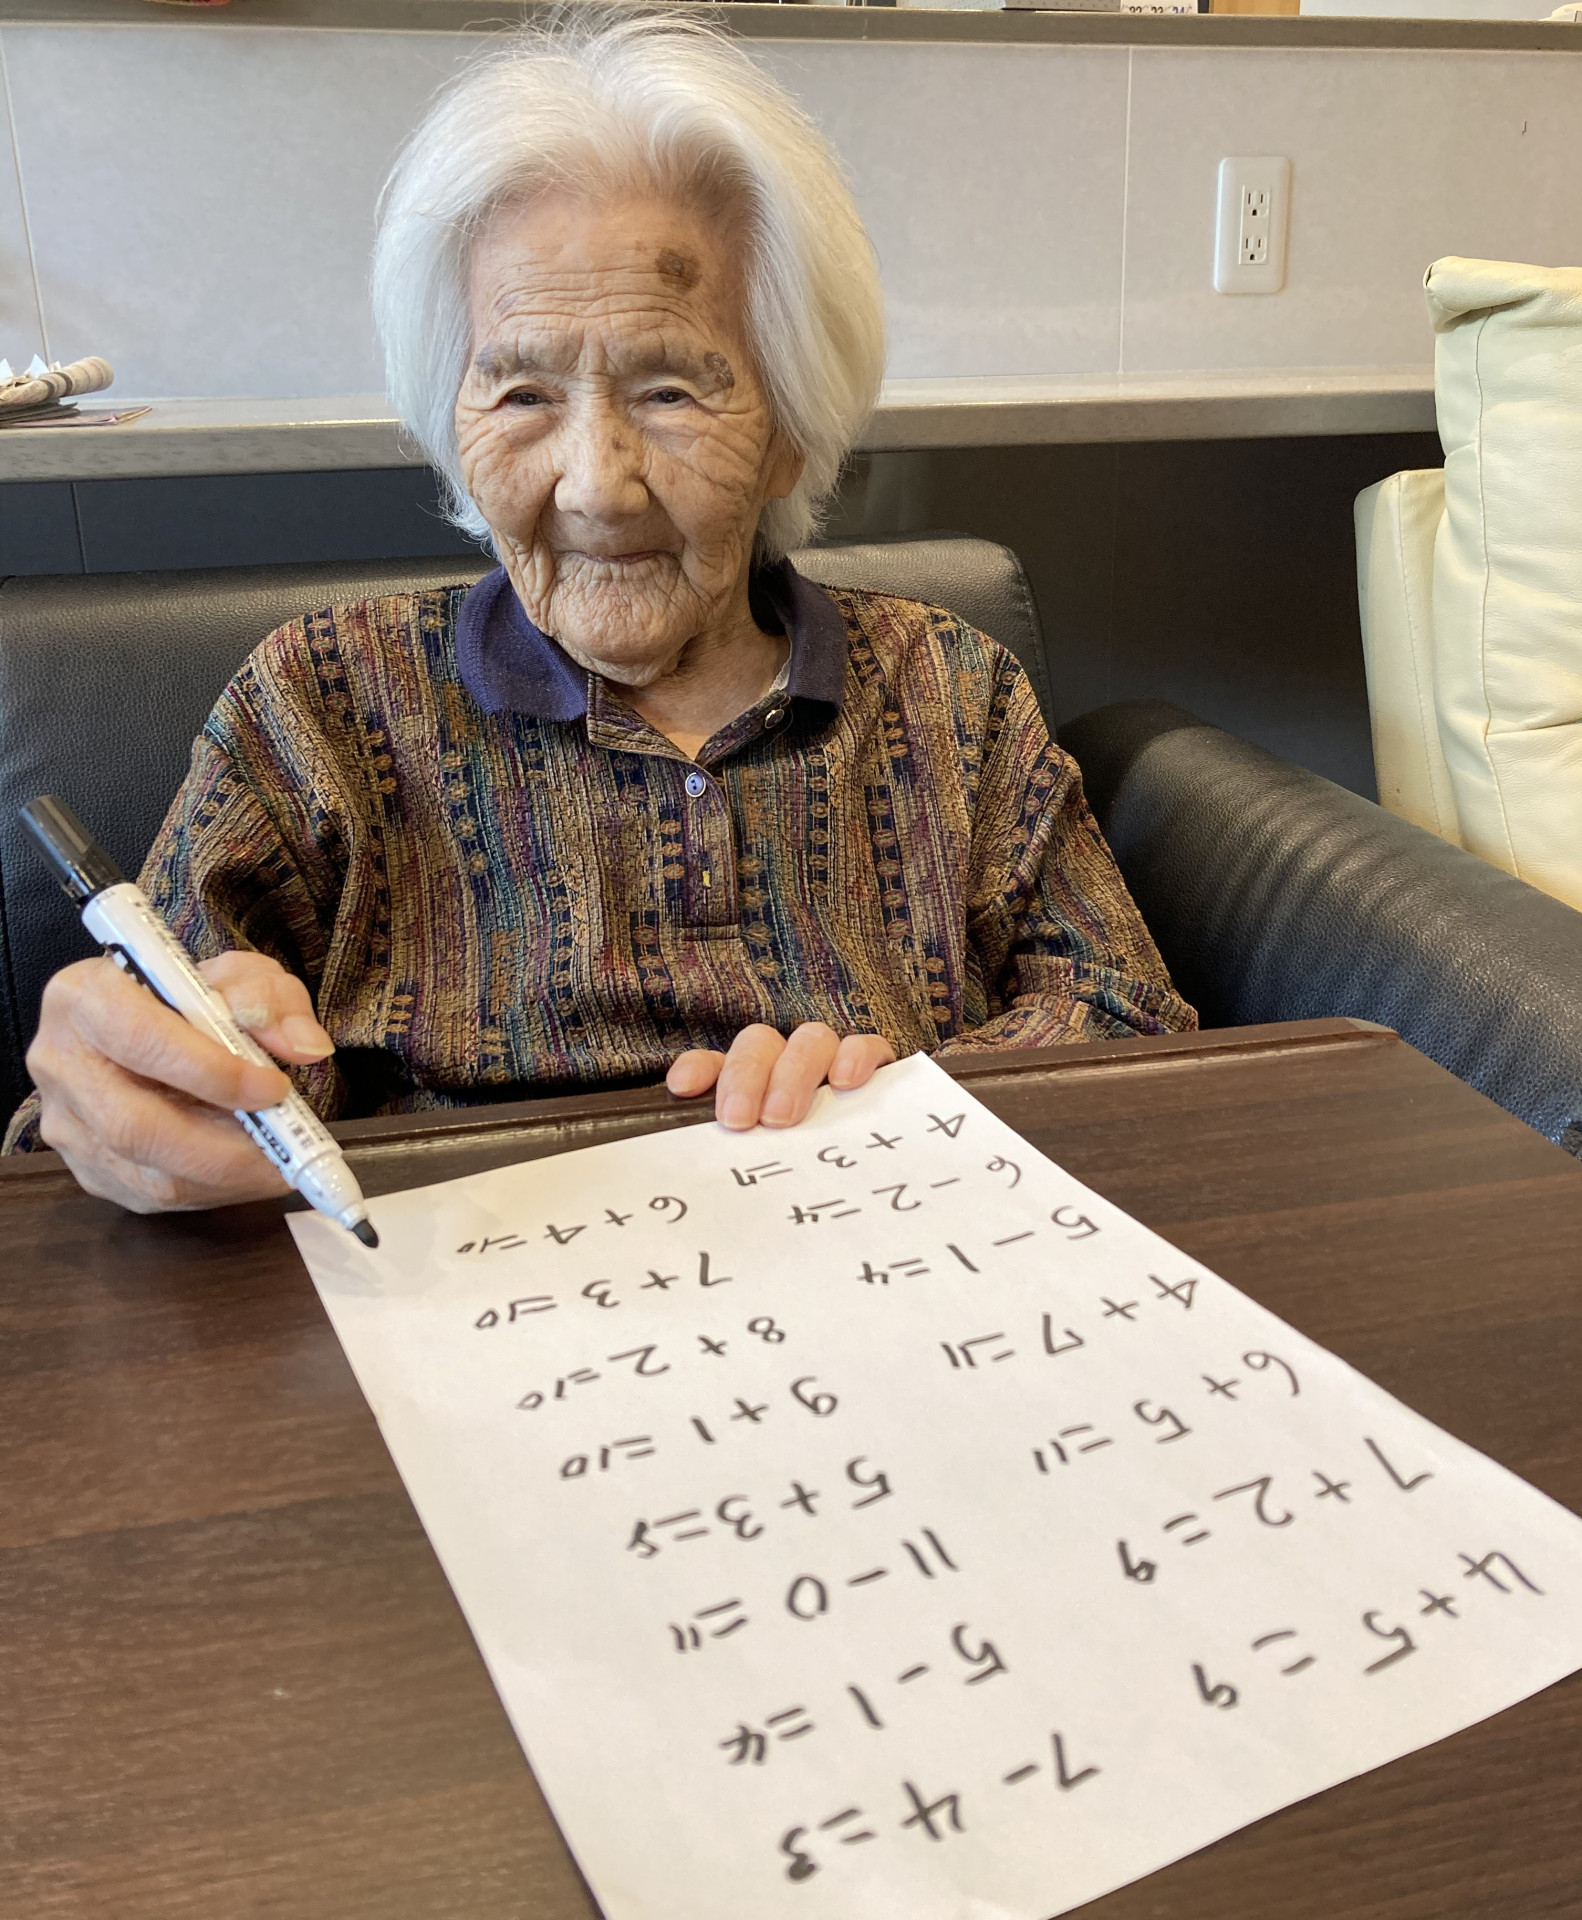 4 + 5 = 9
7 + 2 = 9
6 + 5 = 11
4 + 7 = 11
5 - 1 = 4
6 - 2 = 4
4 + 3 = 7
7 - 4 = 3
5 - 1 = 4
11 - 0 = 11
5 + 3 = 8
9 + 1 = 10
8 + 2 = 10
7 + 3 = 10
6 + 4 = 10